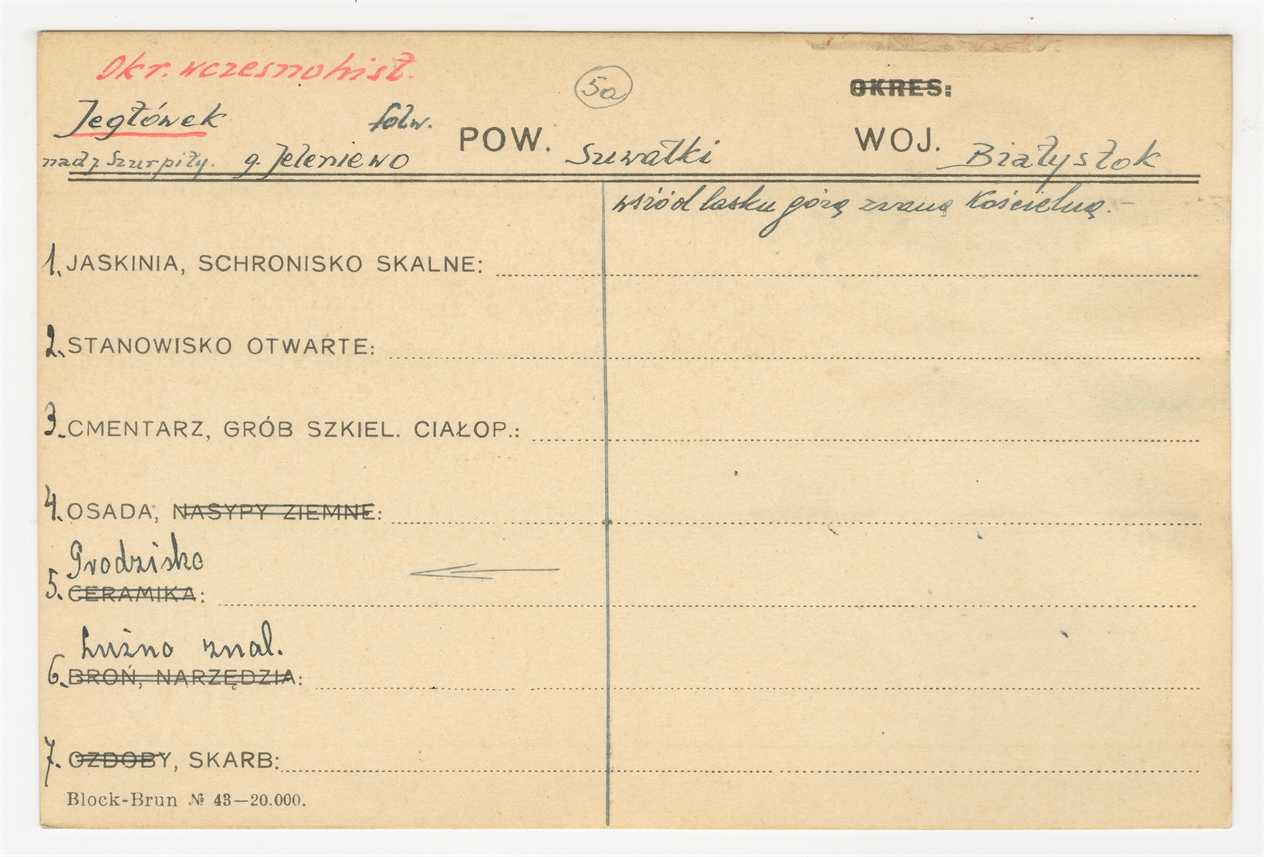 Okr. wczesnohist.
5a
OKRES:
Jegłówek folw.
POW. Suwałki
WOJ. Białystok
nad j. Szurpiły. g. Jeleniewo
wśród lasku górą zwaną Kościelną.-
1. JASKINIA, SCHRONISKO SKALNE:
2. STANOWISKO OTWARTE:
3. CMENTARZ, GRÓB SZKIEL. CIAŁOP.:
4. OSADA, NASYPY ZIEMNE:
Grodzisko
5. CERAMIKA:
Luźno znal.
6. BROŃ, NARZĘDZIA:
7. OZDOBY, SKARB:
Block-Brun № 43—20.000.